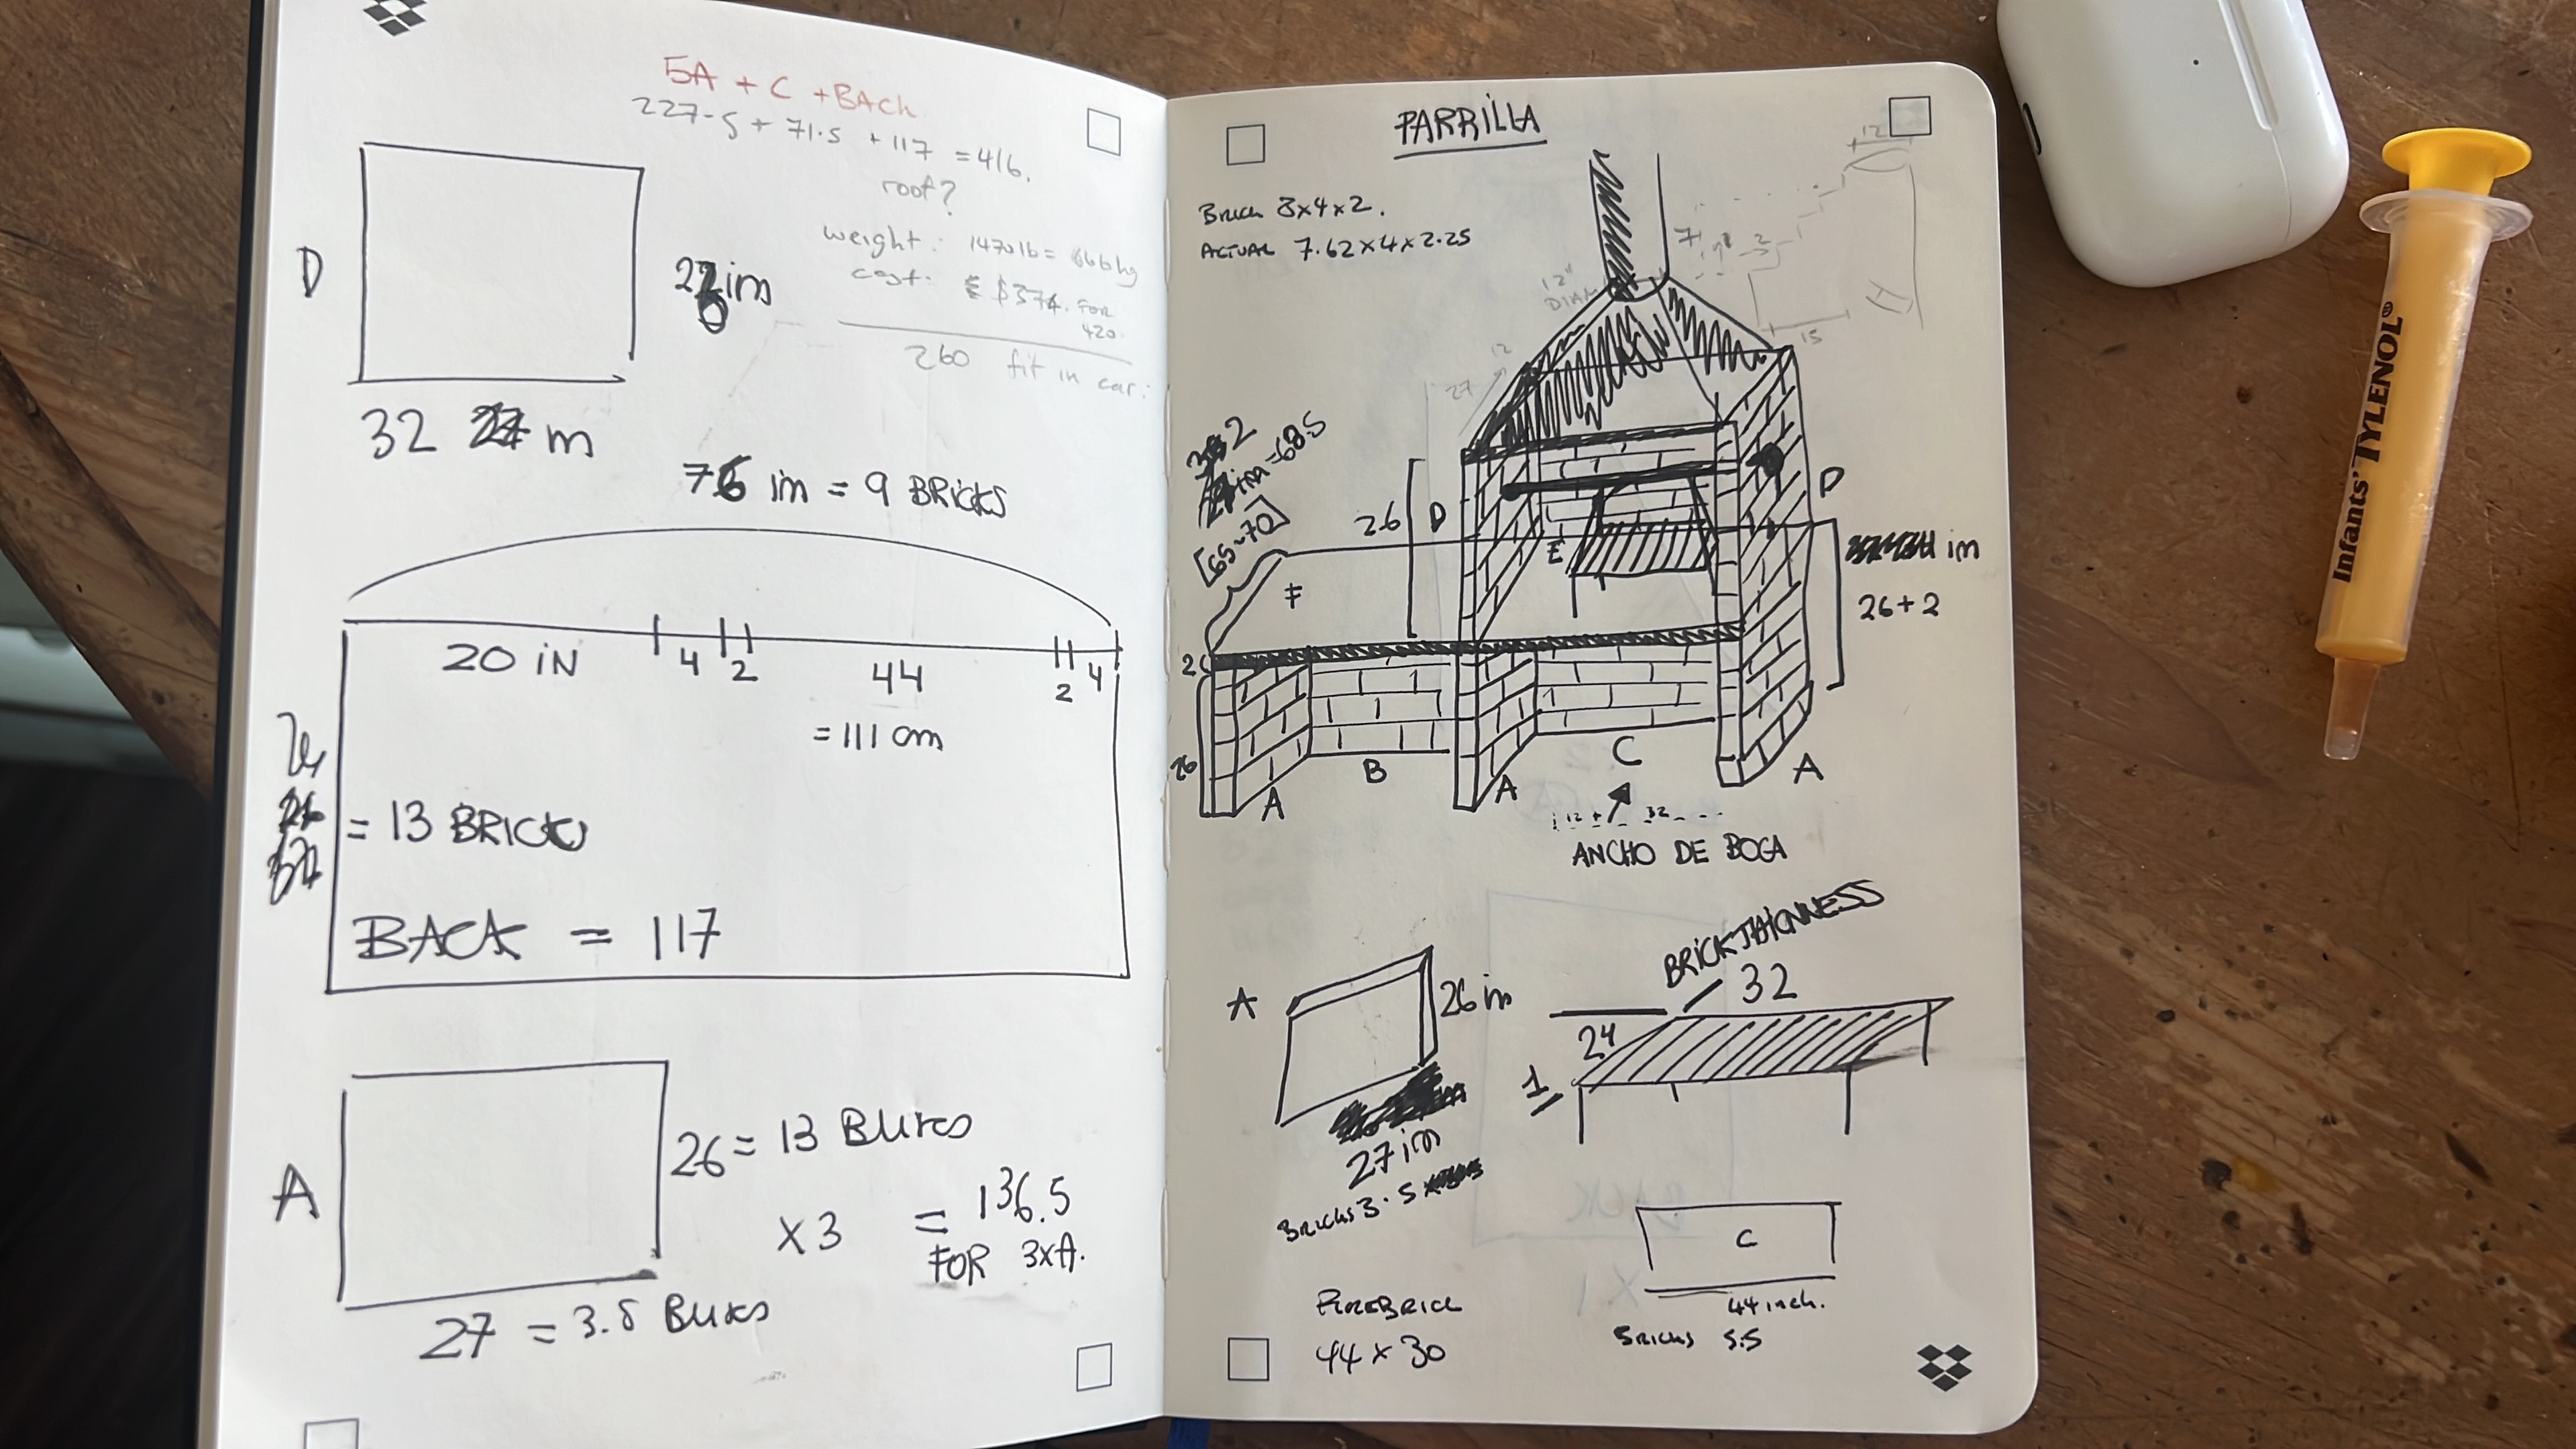 5A + C + BACK
227.5 + 71.5 + 117 = 416.
roof?
weight: 1470lb = 666kg
cost: $374. FOR
420.
260 fit in car:
D
in
32 m
76 in = 9 BRICKS
20 IN 4 2 44 2 4
= 111 cm
= 13 BRICKS
BACK = 117
A
26 = 13 BRICKS
X3 = 136.5
FOR 3xA.
27 = 3.5 BRICKS
PARRILLA
12
Brick 8x4x2.
ACTUAL 7.62x4x2.25
7
2
12"
DIAM
15
12
27
in = 68.5
[65-70]
26
D
D
E
F
in
26+2
2
26
A
B
A
C
A
12 + 32
ANCHO DE BOCA
BRICK THICKNESS
A
26 in
32
24
1
27 in
Bricks 3.5
C
44 inch.
Bricks 5.5
FIREBRICK
44 x 30
Infants' TYLENOL®